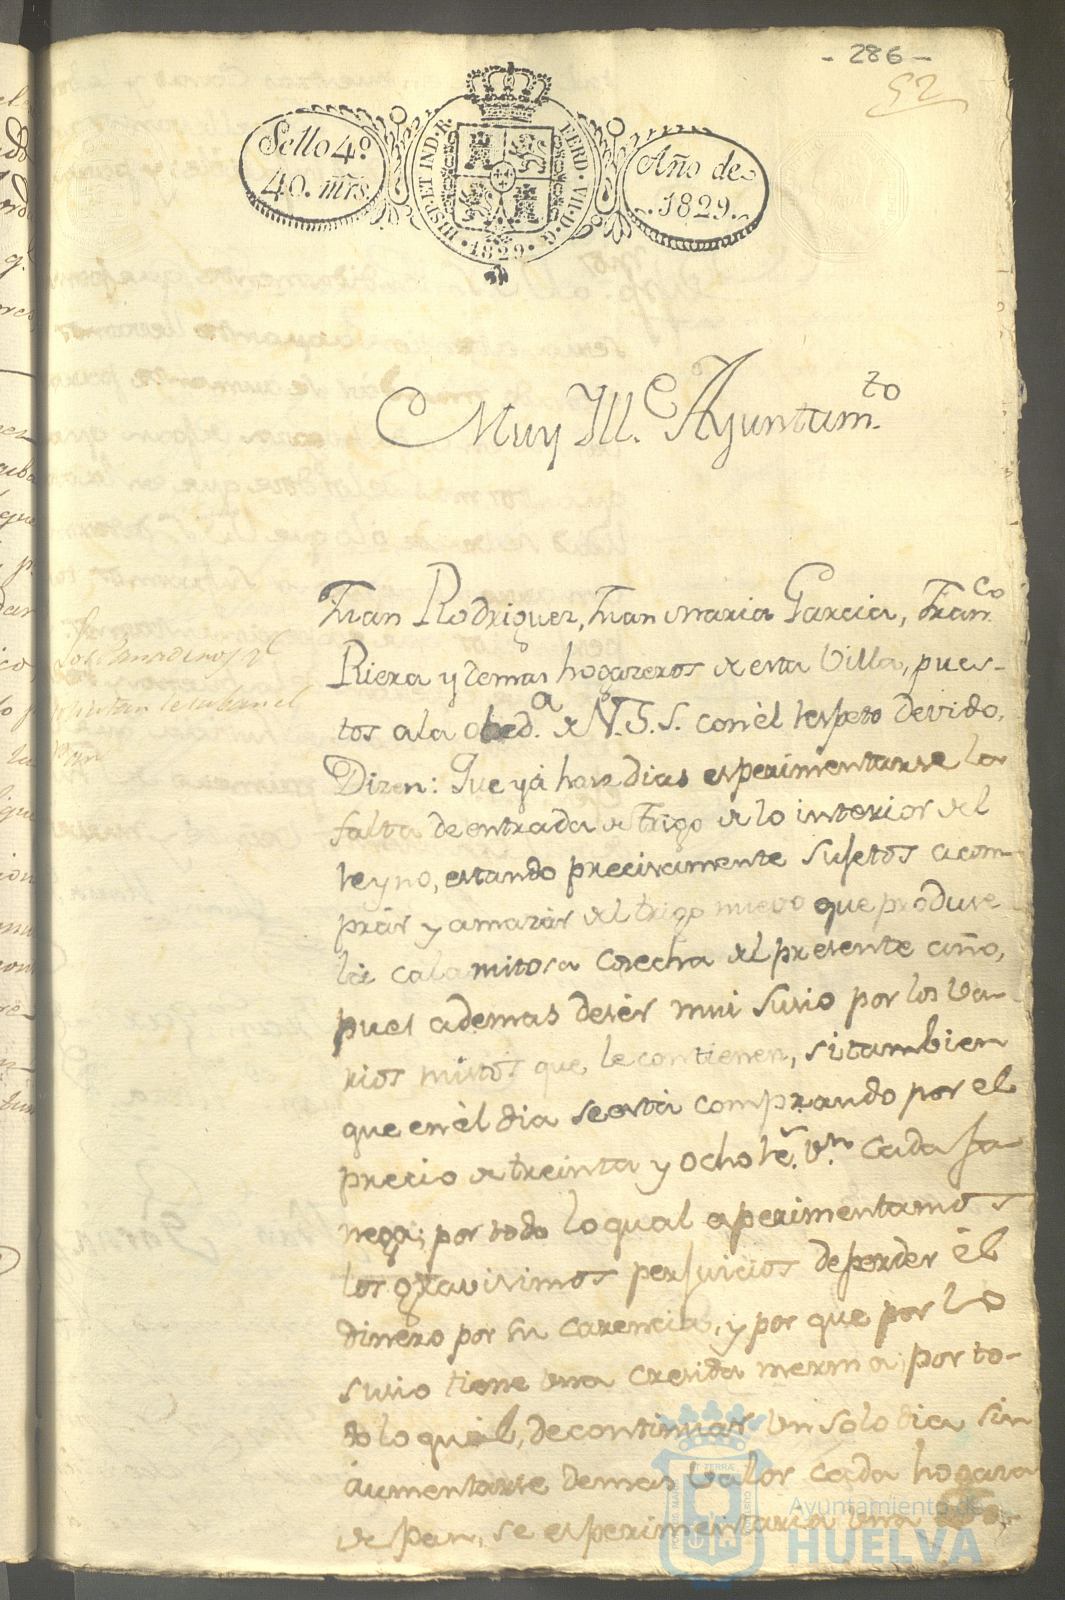 - 286 -
52
Sello 4º.
40. mrs.
HISP. ET IND. R.
FERD. VII. D. G.
· 1829 ·
Año de
1829.
Muy Ill.e Ayuntam.to
Juan Rodriguez, Juan Maria Garcia, Fran.co
Riera y demas hogazeros de esta Villa, pues-
tos a la obed.a de V.S.S. con èl respeto devido,
Dizen: Que yá haze dias esperimentarse la
falta de entrada de trigo de lo interior del
reyno, estando precisamente sujetos a com-
prár y amazár del trigo nuevo que produse
la calamitosa cosecha del presente año,
pues ademas de sér mui susio por los va-
rios mistos que le contienen, si tambien
que en èl dia se está comprando por el
precio de treinta y ocho rs. vn. cada fa-
nega; por todo lo qual esperimentamos
los gravisimos perjuicios de perder èl
dinero por su carencia, y por que por lo
susio tiene una cresida merma; por to-
do lo qual, de continuar un solo dia sin
aumentarse de mas valor cada hogaza
de pan, se esperimentaria una
Los Panaderos
el
pan
Ayuntamiento de
HUELVA